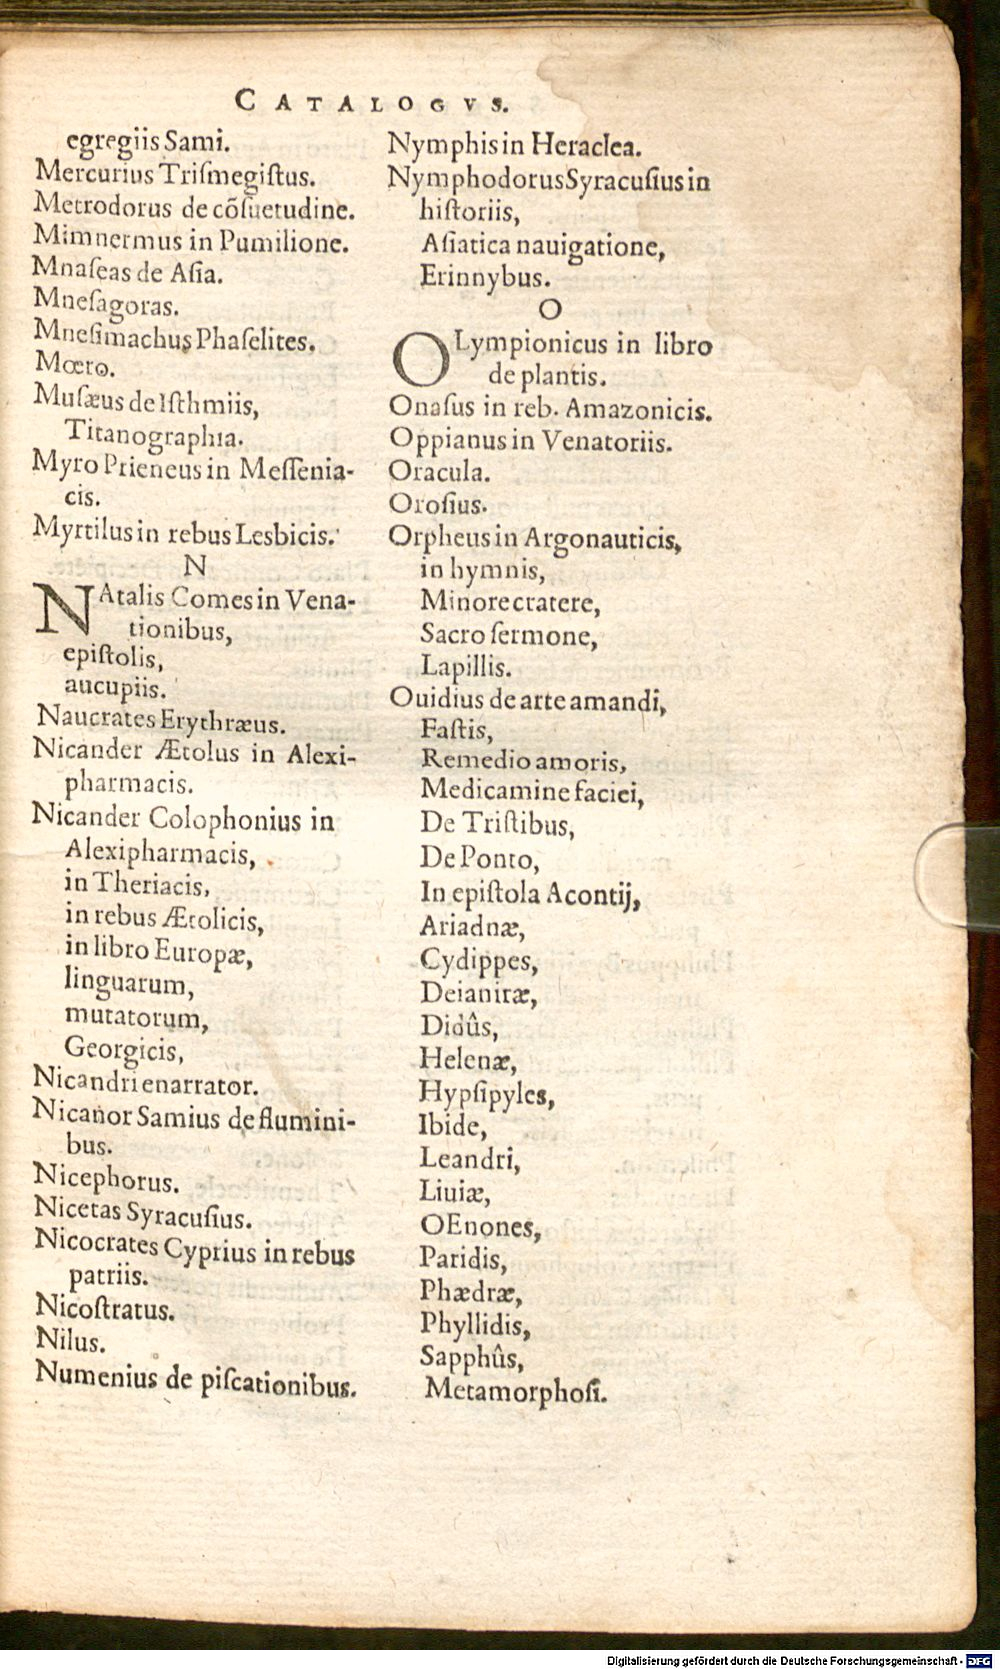 CATALOGVS.
egregiis Sami.
Mercurius Triſmegiſtus.
Metrodorus de cõſuetudine.
Mimnermus in Pumilione.
Mnaſeas de Aſia.
Mneſagoras.
Mneſimachus Phaſelites.
Mœro.
Muſæus de Iſthmiis,
Titanographia.
Myro Prieneus in Meſſenia-
cis.
Myrtilus in rebus Lesbicis.
N
NAtalis Comes in Vena-
tionibus,
epiſtolis,
aucupiis.
Naucrates Erythræus.
Nicander Ætolus in Alexi-
pharmacis.
Nicander Colophonius in
Alexipharmacis,
in Theriacis,
in rebus Ætolicis,
in libro Europæ,
linguarum,
mutatorum,
Georgicis,
Nicandri enarrator.
Nicanor Samius de flumini-
bus.
Nicephorus.
Nicetas Syracuſius.
Nicocrates Cyprius in rebus
patriis.
Nicoſtratus.
Nilus.
Numenius de piſcationibus.
Nymphis in Heraclea.
Nymphodorus Syracuſius in
hiſtoriis,
Aſiatica nauigatione,
Erinnybus.
O
OLympionicus in libro
de plantis.
Onaſus in reb. Amazonicis.
Oppianus in Venatoriis.
Oracula.
Oroſius.
Orpheus in Argonauticis,
in hymnis,
Minore cratere,
Sacro ſermone,
Lapillis.
Ouidius de arte amandi,
Faſtis,
Remedio amoris,
Medicamine faciei,
De Triſtibus,
De Ponto,
In epiſtola Acontij,
Ariadnæ,
Cydippes,
Deianiræ,
Didûs,
Helenæ,
Hypſipyles,
Ibide,
Leandri,
Liuiæ,
OEnones,
Paridis,
Phædræ,
Phyllidis,
Sapphûs,
Metamorphoſi.
Digitalisierung gefördert durch die Deutsche Forschungsgemeinschaft - DFG